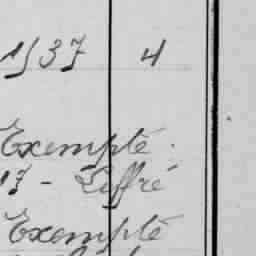 1537 4
Exempté.
17 - Liffré
Exempté